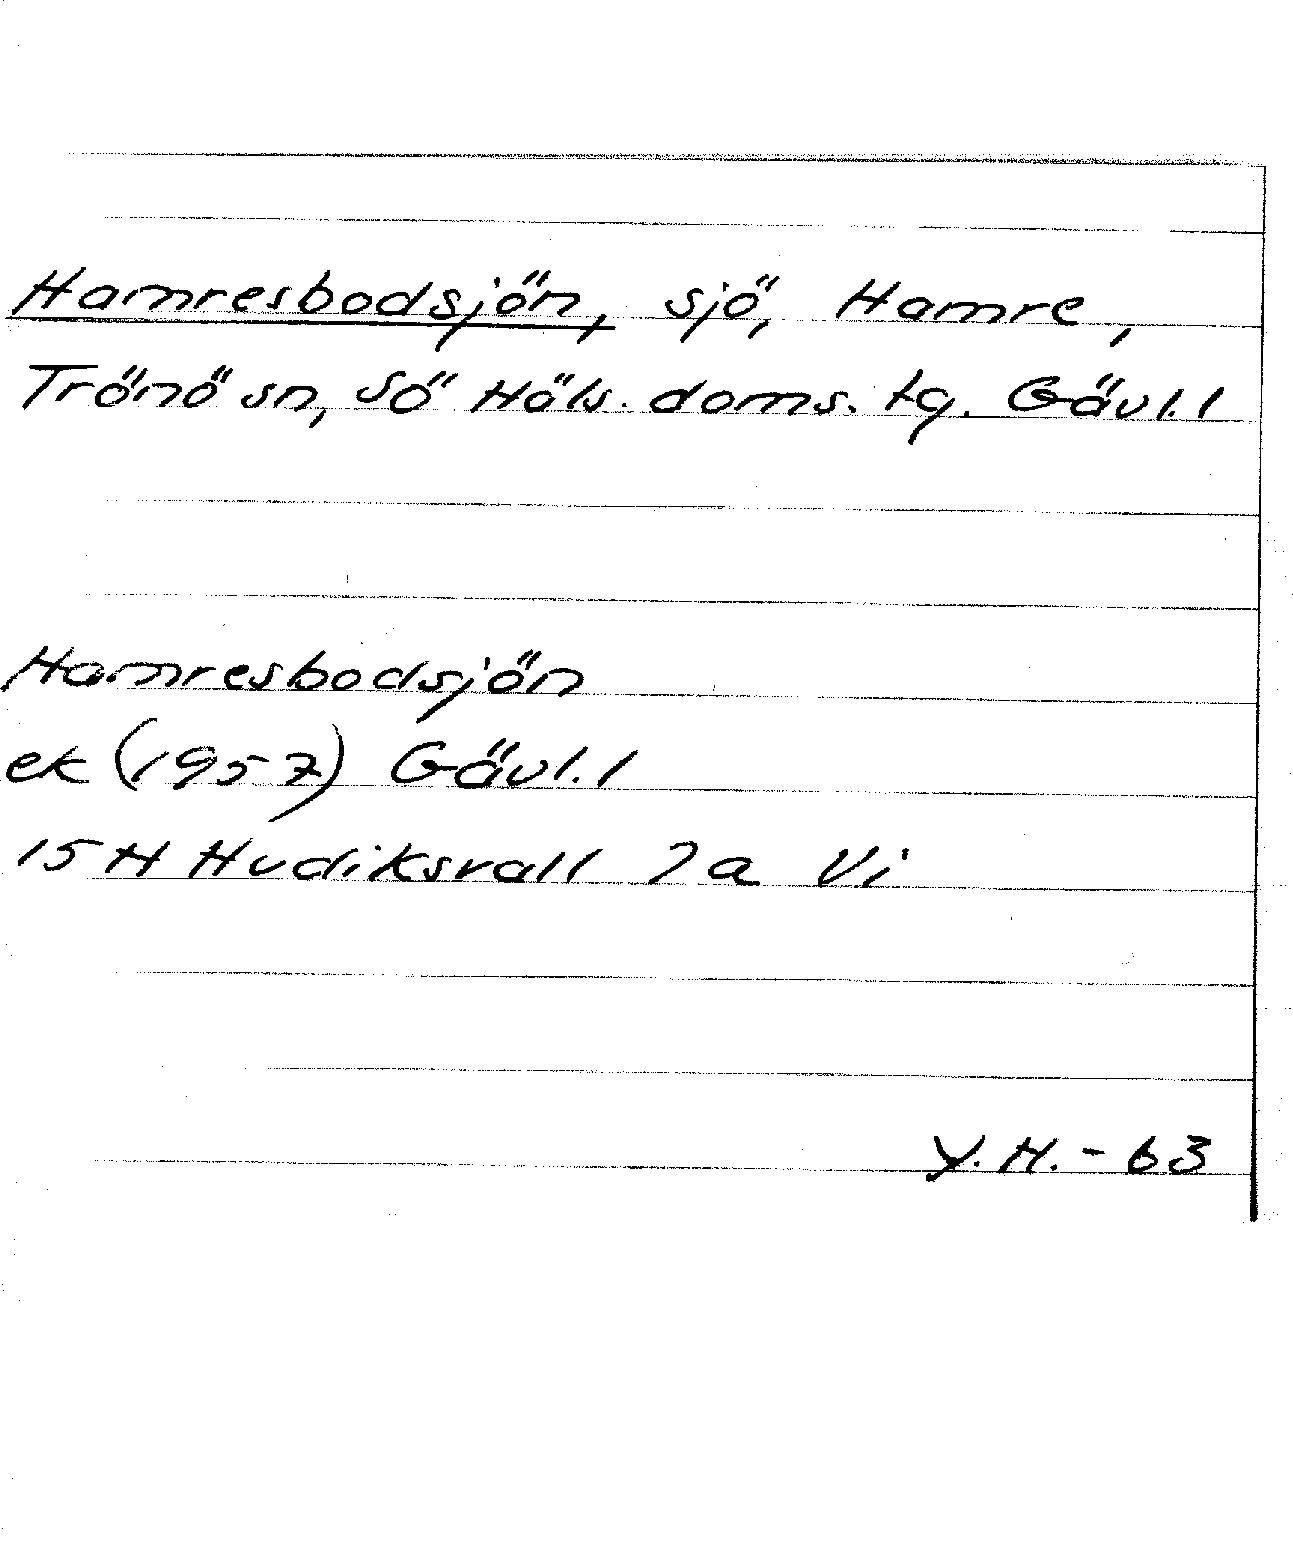 Hamresbodsjön, sjö, Hamre,
Trönö sn, Sö Häls. doms. tg. Gävl. l
Hamresbodsjön
ek (1957) Gävl. l
15 H Hudiksvall 7a Vi
Y.H. - 63